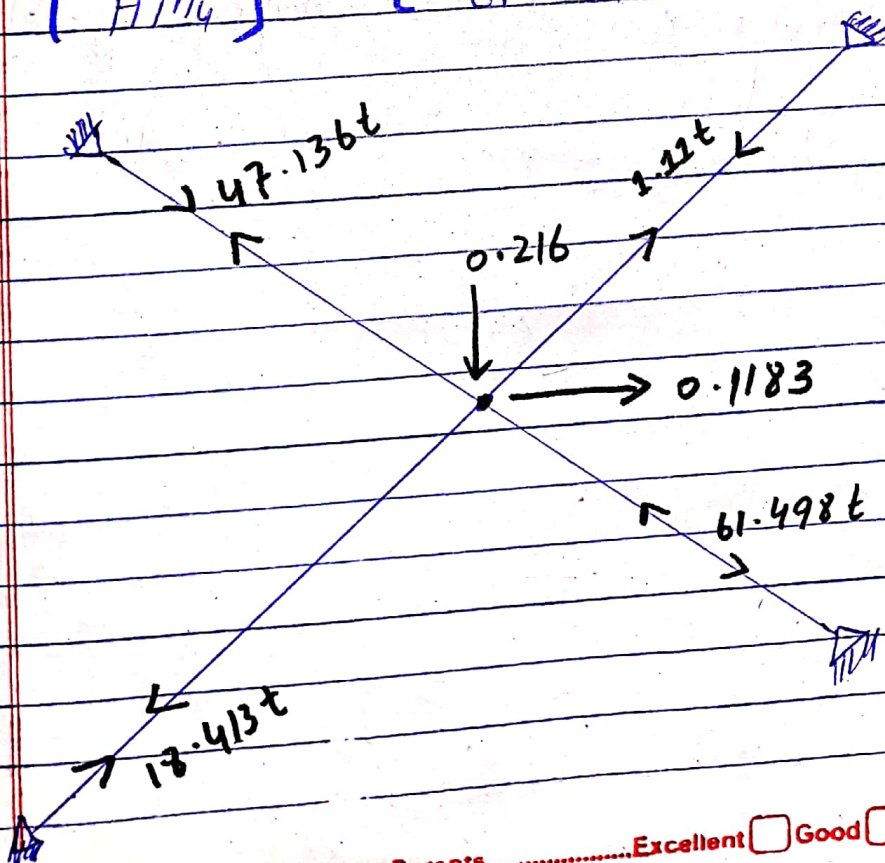 47.136t
1.11t
0.216
0.1183
61.498t
18.413t
Excellent Good